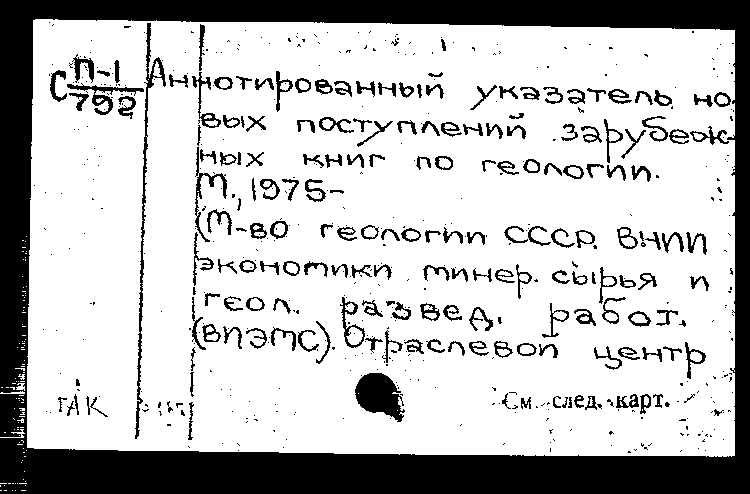 С П-1 Аннотированный указатель но-
792
вых поступлений зарубеж-
ных книг по геологии.
М., 1975-
(М-во геологии СССР. ВНИИ
экономики минер. сырья и
геол. развед. работ.
(ВИЭМС). Отраслевой центр
ГАК
См. след. карт.